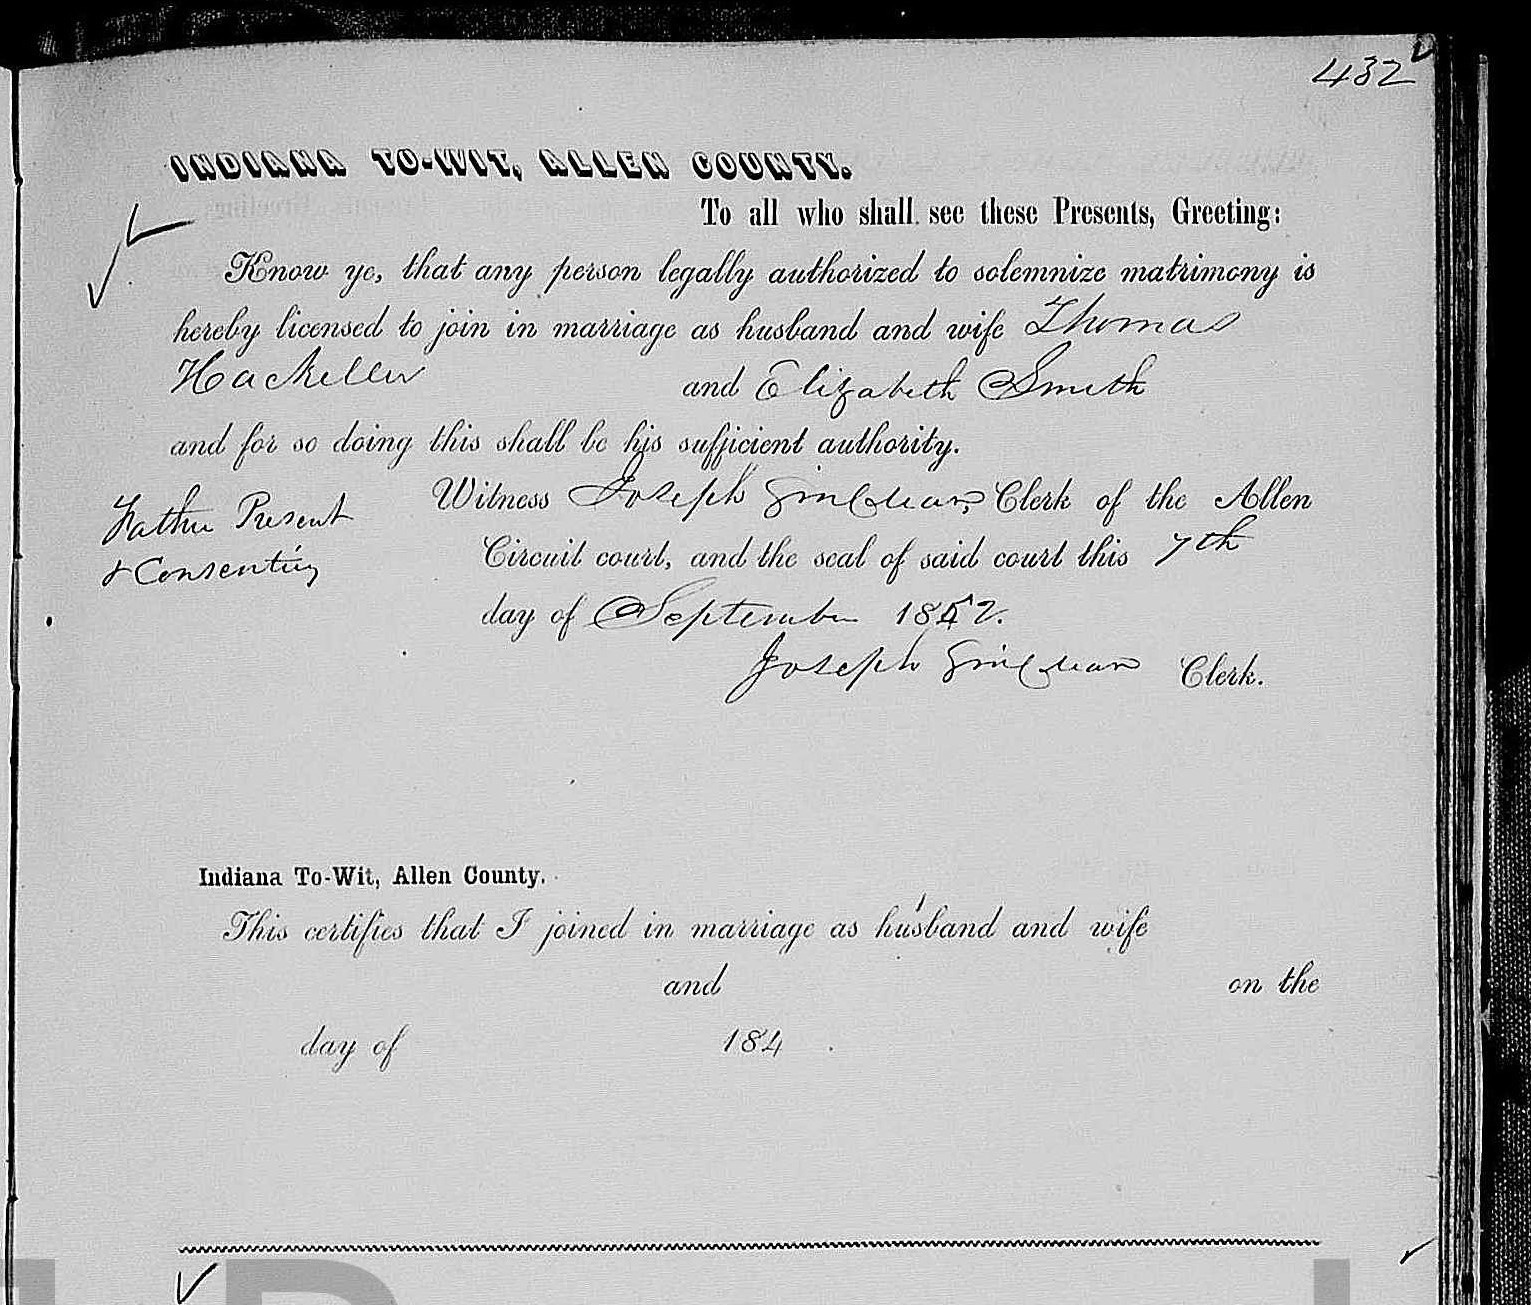 432
INDIANA TO-WIT, ALLEN COUNTY.
To all who shall see these Presents, Greeting:
Know ye, that any person legally authorized to solemnize matrimony is
hereby licensed to join in marriage as husband and wife Thomas
Hackeller and Elizabeth Smith
and for so doing this shall be his sufficient authority.
Father Present
& Consenting
Witness Joseph Sinclear, Clerk of the Allen
Circuit court, and the seal of said court this 7th
day of September 1852.
Joseph Sinclear Clerk.
Indiana To-Wit, Allen County.
This certifies that I joined in marriage as husband and wife
and on the
day of 184